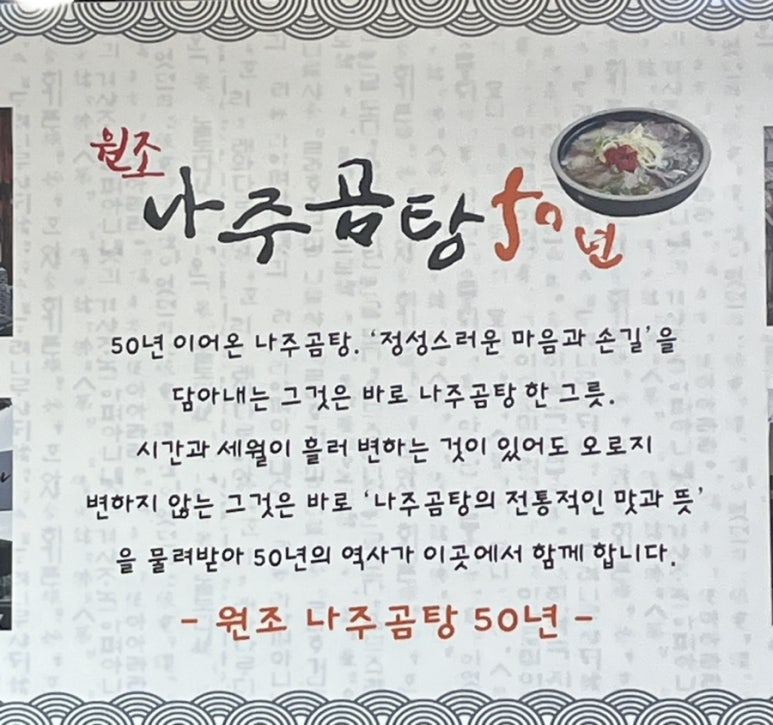 원조
나주곰탕 50년
50년 이어온 나주곰탕. ‘정성스러운 마음과 손길’을
담아내는 그것은 바로 나주곰탕 한 그릇.
시간과 세월이 흘러 변하는 것이 있어도 오로지
변하지 않는 그것은 바로 ‘나주곰탕의 전통적인 맛과 뜻’
을 물려받아 50년의 역사가 이곳에서 함께 합니다.
- 원조 나주곰탕 50년 -